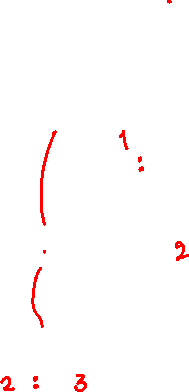 1:
2
2 : 3